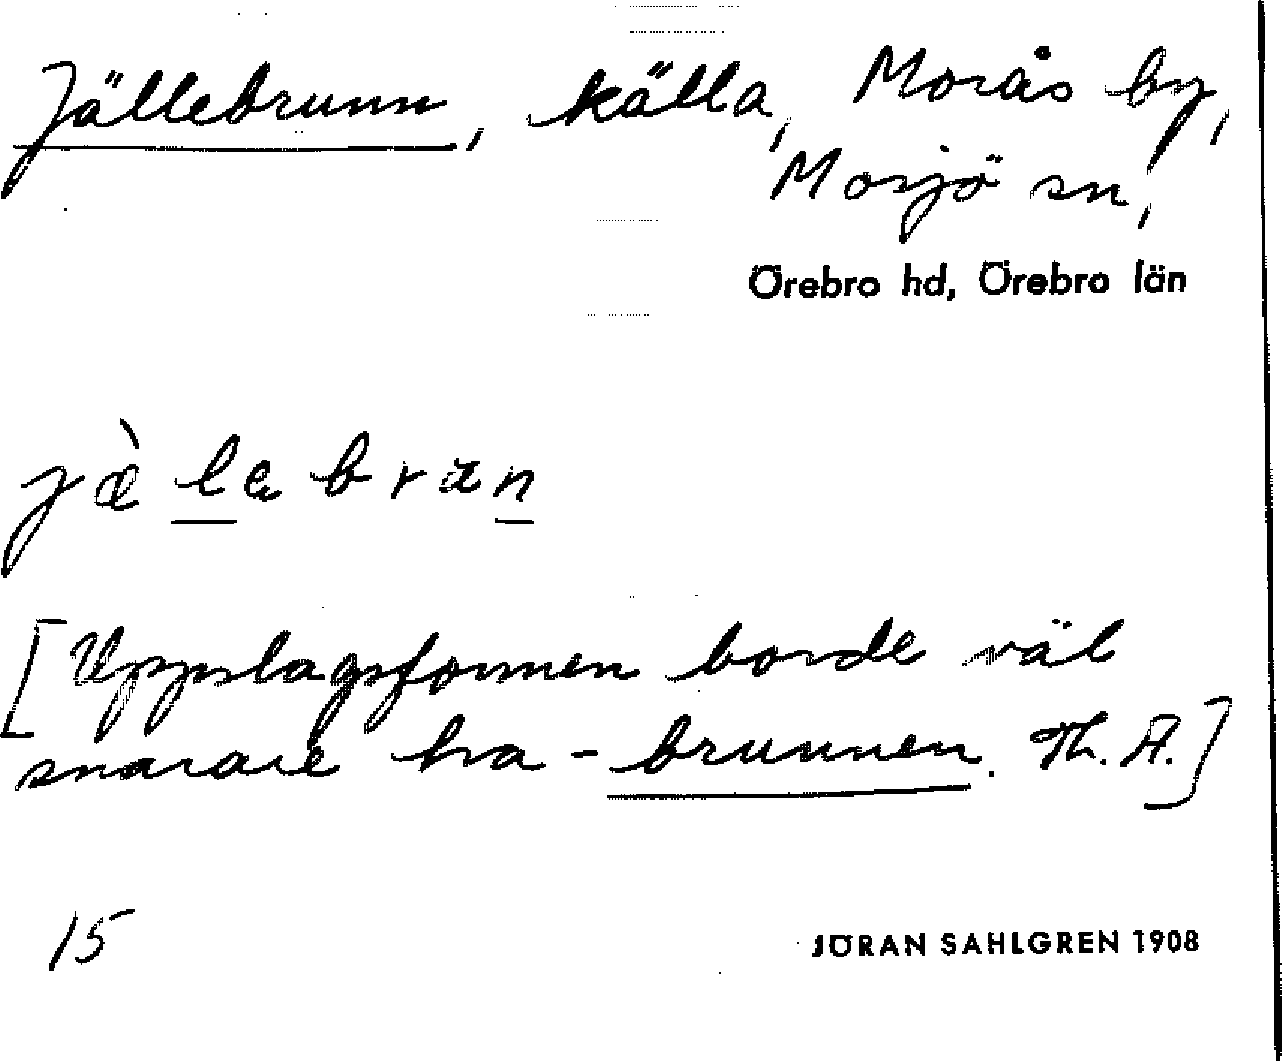 Jällebrunn, källa, Morås by,
Mosjö sn,
Örebro hd, Örebro län
jæ̀lebrun
[Uppslagsformen borde väl
snarare ha -brunnen. Th. A.]
15
JÖRAN SAHLGREN 1908